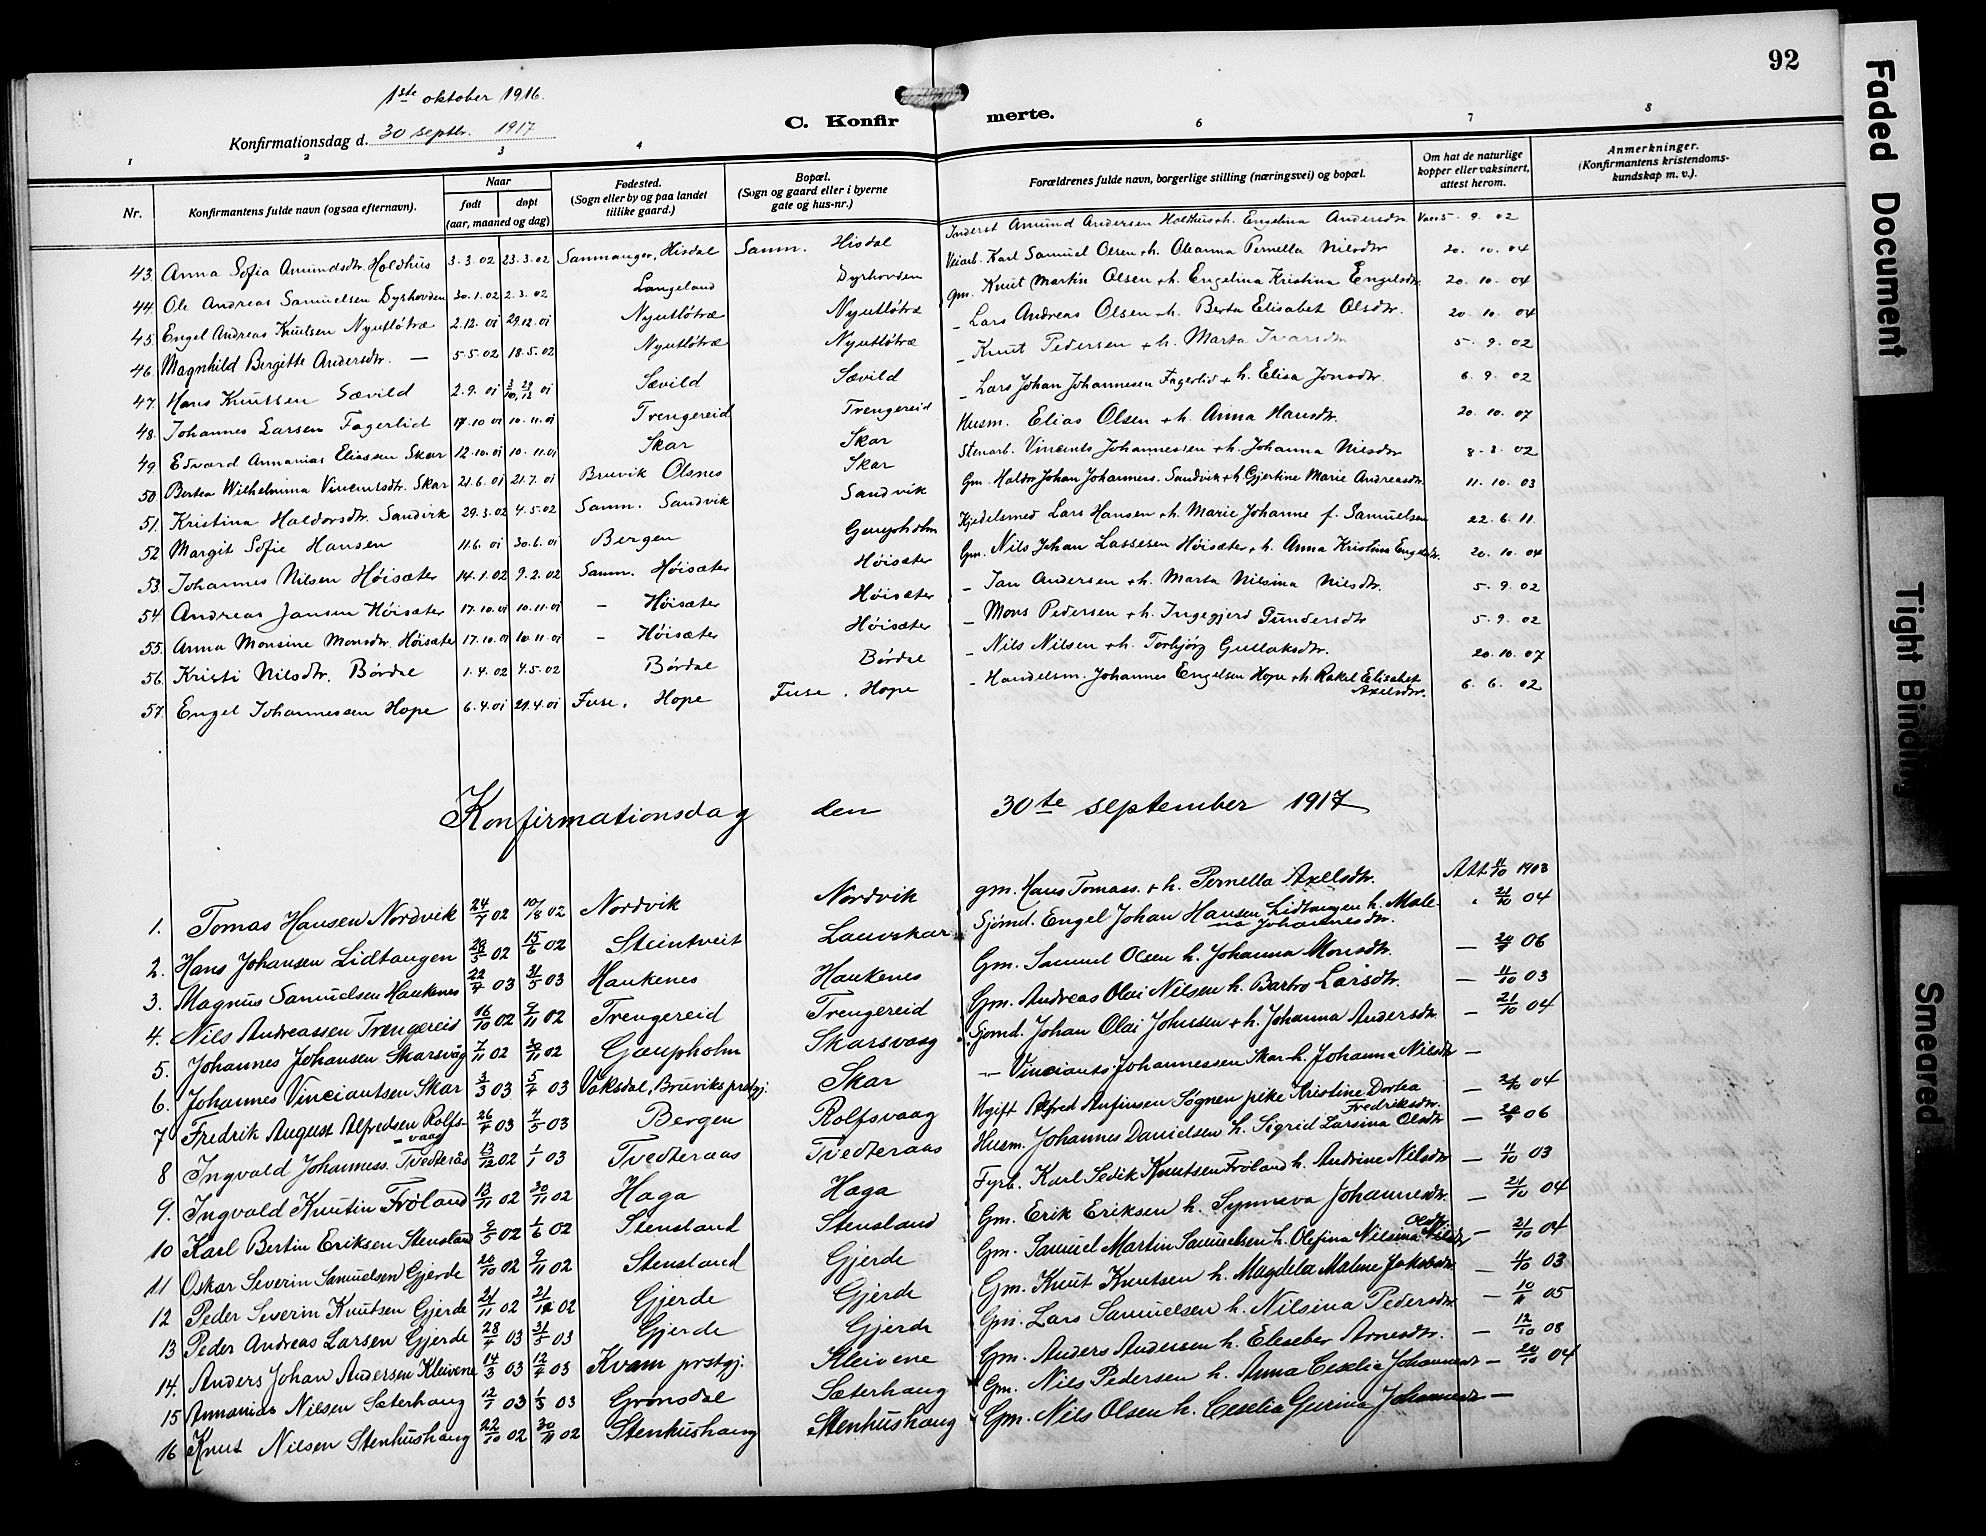 92
1ste oktober 1916.
Konfirmationsdag d. 30 septbr. 1917
C. Konfirmerte.
1 2 3 4 6 7 8
Nr.
Konfirmantens fulde navn (ogsaa efternavn).
Naar
født
døpt
(aar, maaned og dag)
Fødested.
(Sogn eller by og paa landet
tillike gaard.)
Bopæl.
(Sogn og gaard eller i byerne
gate og hus-nr.)
Forældrenes fulde navn, borgerlige stilling (næringsvei) og bopæl.
Om hat de naturlige
kopper eller vaksinert,
attest herom.
Anmerkninger.
(Konfirmantens kristendoms-
kundskap m. v.).
43. Anna Sofia Amundsdtr. Holdhus 3.3.02 23.3.02 Sammanger, Hisdal Samm. Hisdal Inderst Amund Andersen Holdhus + h. Engelina Andersdtr. 5. 9. 02
44. Ole Andreas Samuelsen Dyrhovden 30.1.02 2.3.02 Langeland Dyrhovden Veiarb. Karl Samuel Olsen + h. Oleanna Pernella Nilsdtr 20. 10. 04
45. Engel Andreas Knutsen Nyutløtræ 2.12.01 29.12.01 Nyutløtræ Nyutløtræ gm. Knut Martin Olsen + h. Engelina Kristina Engelsdtr. 20. 10. 04
46. Magnhild Bergitte Andersdtr. — 5.5.02 18.5.02 Nyutløtræ Nyutløtræ - Lars Andreas Olsen + h. Berta Elisabet Olsdtr. 20. 10. 04
47. Hans Knutsen Sævild 2.9.01 Sævild Sævild - Knut Pedersen + h. Marta Ivarsdtr 5. 9. 02
48. Johannes Larsen Fagerlid 17.10.01 10.11.01 Trengereid Trengereid - Lars Johan Johannesen Fagerlid + h. Elisa Jonsdtr. 6. 9. 02
49 Edvard Annanias Eliassen Skar 12.10.01 10.11.01 Skar Skar Husm. Elias Olsen + h. Anna Hansdtr. 20. 10. 07
50. Bertea Wilhelmina Vincentsdtr. Skar 21.6.01 21.7.01 Bruvik Olsnes Skar Stenarb. Vincents Johannessen + h. Johanna Nilsdtr 8. 8. 02
51. Kristina Haldorsdtr. Sandvik 29.3.02 4.5.02 Samm. Sandvik Sandvik Gm. Haldor Johan Johanness. Sandvik + h. Gjertine Marie Andreasdtr. 11. 10. 03
52 Margit Sofie Hansen 11.6.01 30.6.01 Bergen Gaupholm Kjedelsmed Lars Hansen + h. Marie Johanne f. Samuelsen 22. 6. 11.
53. Johannes Nilsen Høisæter 14.1.02 9.2.02 Samm. Høisæter Høisæter Gm. Nils Johan Lassesen Høisæter + h. Anna Kristina Engelsdtr. 20. 10. 04
54. Andreas Jansen Høisæter 17.10.01 10.11.01 - Høisæter Høisæter - Jan Andersen + h. Marta Nilsina Nilsdtr. 5. 9. 02
55. Anna Monsine Monsdtr. Høisæter 17.10.01 10.11.01 - Høisæter Høisæter - Mons Pedersen + h. Ingegjerd Gundersdtr 5. 9. 02
56. Kristi Nilsdtr. Børdal 1.4.02 4.5.02 Børdal Børdal - Nils Nilsen + h. Torbjørg Gullaksdtr. 20. 10. 07
57. Engel Johannessen Hope 6.4.01 21.4.01 Fuse, Hope Fuse, Hope - Handelsm. Johannes Engelsen Hope + h. Rakel Elisabet 6. 6. 02
Axelsdtr.
Konfirmationsdag den 30te september 1917
1. Tomas Hansen Nordvik 24/7 02 10/8 02 Nordvik Nordvik gm. Hans Tomass. + h. Pernella Axelsdtr. Att 11/10 1903
2. Hans Johansen Lidtangen 29/5 02 15/6 02 Steintveit Lauvskar Sjömd. Engel Johan Hansen Lidtangen h. Male- 21/10 04
na Johannesdtr.
3. Magnus Samuelsen Haukenes 22/4 03 31/5 03 Haukenes Haukenes Gm. Samuel Olsen h. Johanna Monsdtr. — 06
4. Nils Andreassen Trengereid 16/10 02 9/11 02 Trengereid Trengereid Gm. Andreas Olai Nilsen h. Barbro Larsdtr. — 11/10 03
5. Johannes Johansen Skarsvåg 7/11 02 30/11 02 Gaupholm Skarsvaag Sjömd. Johan Olai Johnsen + h. Johanna Andersdtr. — 21/10 04
6. Johannes Vinciantsen Skar 3/3 03 5/4 03 Vaksdal, Bruviks prstgj. Skar — Vincients Johannessen Skar h. Johanna Nilsdtr —
7 Fredrik August Alfredsen Rolfs- 03 03 Bergen Rolfsvaag Ugift Alfred Anfinsen Søgnen pike Kristine Dortea — 21/10 04
vaag
Fredriksdtr.
8 Ingvald Johanness. Tvedterås 13/12 02 1/1 03 Tvedteraas Tvedteraas Husm. Johannes Danielsen h. Sigrid Larsina Olsdtr — 06
9. Ingvald Knutin Fröland 13/11 02 30/11 02 Haga Haga Fyrb. Karl Sedik Knutsen Fröland h. Andrine Nilsdtr — 11/10 03
10 Karl Bertin Eriksen Stensland 2/5 02 1/6 02 Stensland Stensland Gm. Erik Eriksen h. Synneva Johannesdtr. — 21/10 04
11 Oskar Severin Samuelsen Gjerde 20/10 02 9/11 02 Stensland Gjerde Gm. Samuel Martin Samuelsen h. Olefina Nilsina — 21/10 04
Olsdtr
12 Peder Severin Knutsen Gjerde 21/11 02 02 Gjerde Gjerde Gm. Knut Knutsen h. Magdela Malene Jakobsdtr — 11/10 03
13 Peder Andreas Larsen Gjerde 28/4 03 31/5 03 Gjerde Gjerde Gm. Lars Samuelsen h. Nilsina Pedersdtr — 10/11 05
14. Anders Johan Andersen Kleivene 14/3 03 12/4 03 Kvam prstgj. Kleivene Gm. Anders Andersen h. Eleseber Arnesdtr. — 12/10 08
15 Annanias Nilsen Sæterhaug 03 03 Grønsdal Sæterhaug Gm. Nils Pedersen h. Anna Ceselia Johannesdtr — 04
16 Knut Nilsen Stenhushaug 22/10 02 30/11 02 Stenhushaug Stenhushaug Gm. Nils Olsen h. Ceselia Gurina Johannesdtr —
Faded Document
Tight Binding
Smeared